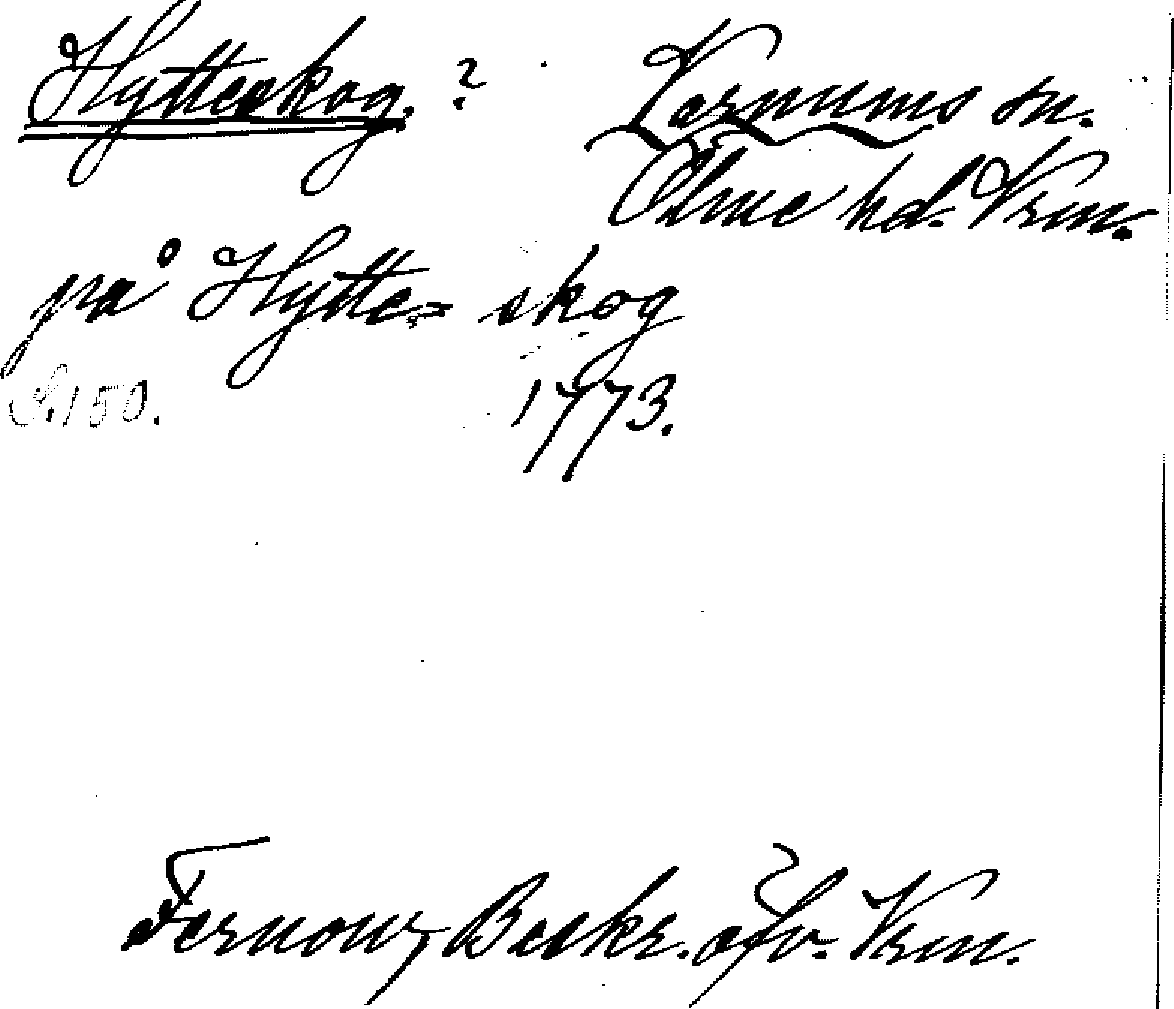 Hytteskog. ? Varnums sn.
Ölme hd. Vrm.
på Hytte= skog
S. 150. 1773.
Fernow, Beskr. öfv. Vrm.